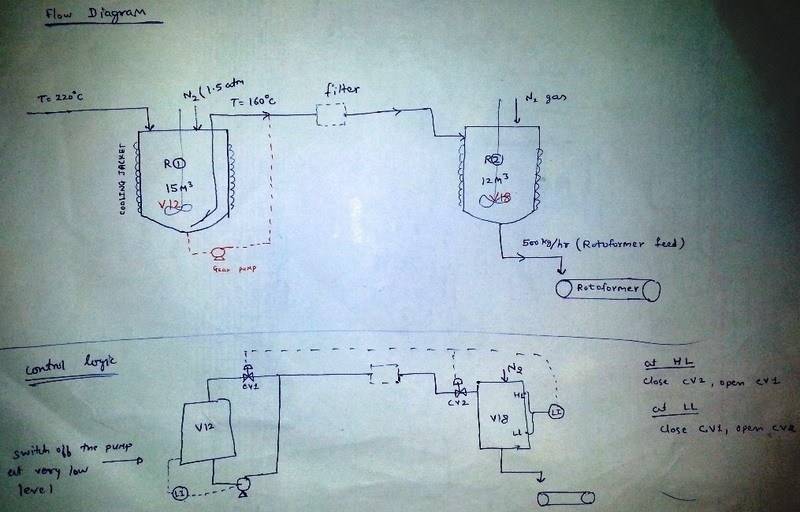 Flow Diagram
T= 220°C
N2 (1.5 atm
T= 160°C
filter
N2 gas
COOLING JACKET
R1
15M3
V12
R2
12M3
V18
Gear pump
500 kg/hr (Rotoformer feed)
Rotoformer
Control logic
CV1
V12
switch off the pump
at very low
level
LI
CV2
N2
HL
V18
LL
LI
at HL
close CV2, open CV1
at LL
close CV1, open CV2